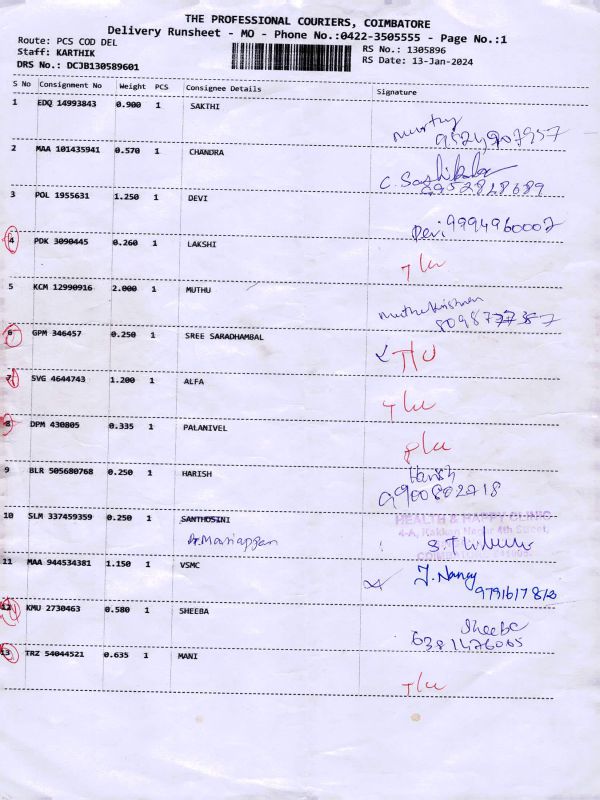 THE PROFESSIONAL COURIERS, COIMBATORE
Delivery Runsheet - MO - Phone No.:0422-3505555 - Page No.:1
Route: PCS COD DEL
Staff: KARTHIK
DRS No.: DCJB130589601
RS No.: 1305896
RS Date: 13-Jan-2024
S No Consignment No Weight PCS Consignee Details Signature
1 EDQ 14993843 0.900 1 SAKTHI
Murthy
9524907957
2 MAA 101435941 0.570 1 CHANDRA
C. Sashikala
8952818689
3 POL 1955631 1.250 1 DEVI
Devi 9994960002
4 PDK 3090445 0.260 1 LAKSHI
5 KCM 12990916 2.000 1 MUTHU
Muthukrishnan
6 GPM 346457 0.250 1 SREE SARADHAMBAL
7 SVG 4644743 1.200 1 ALFA
8 DPM 430805 0.335 1 PALANIVEL
9 BLR 505680768 0.250 1 HARISH
Harish
9900802718
10 SLM 337459359 0.250 1 SANTHOSINI
Dr. Mariappan
HEALTH & HAPPY CLINIC
4-A, Kakkan Nagar 4th Street,
11 MAA 944534381 1.150 1 VSMC
J. Nancy
12 KMU 2730463 0.580 1 SHEEBA
Sheeba
6381476065
13 TRZ 54044521 0.635 1 MANI